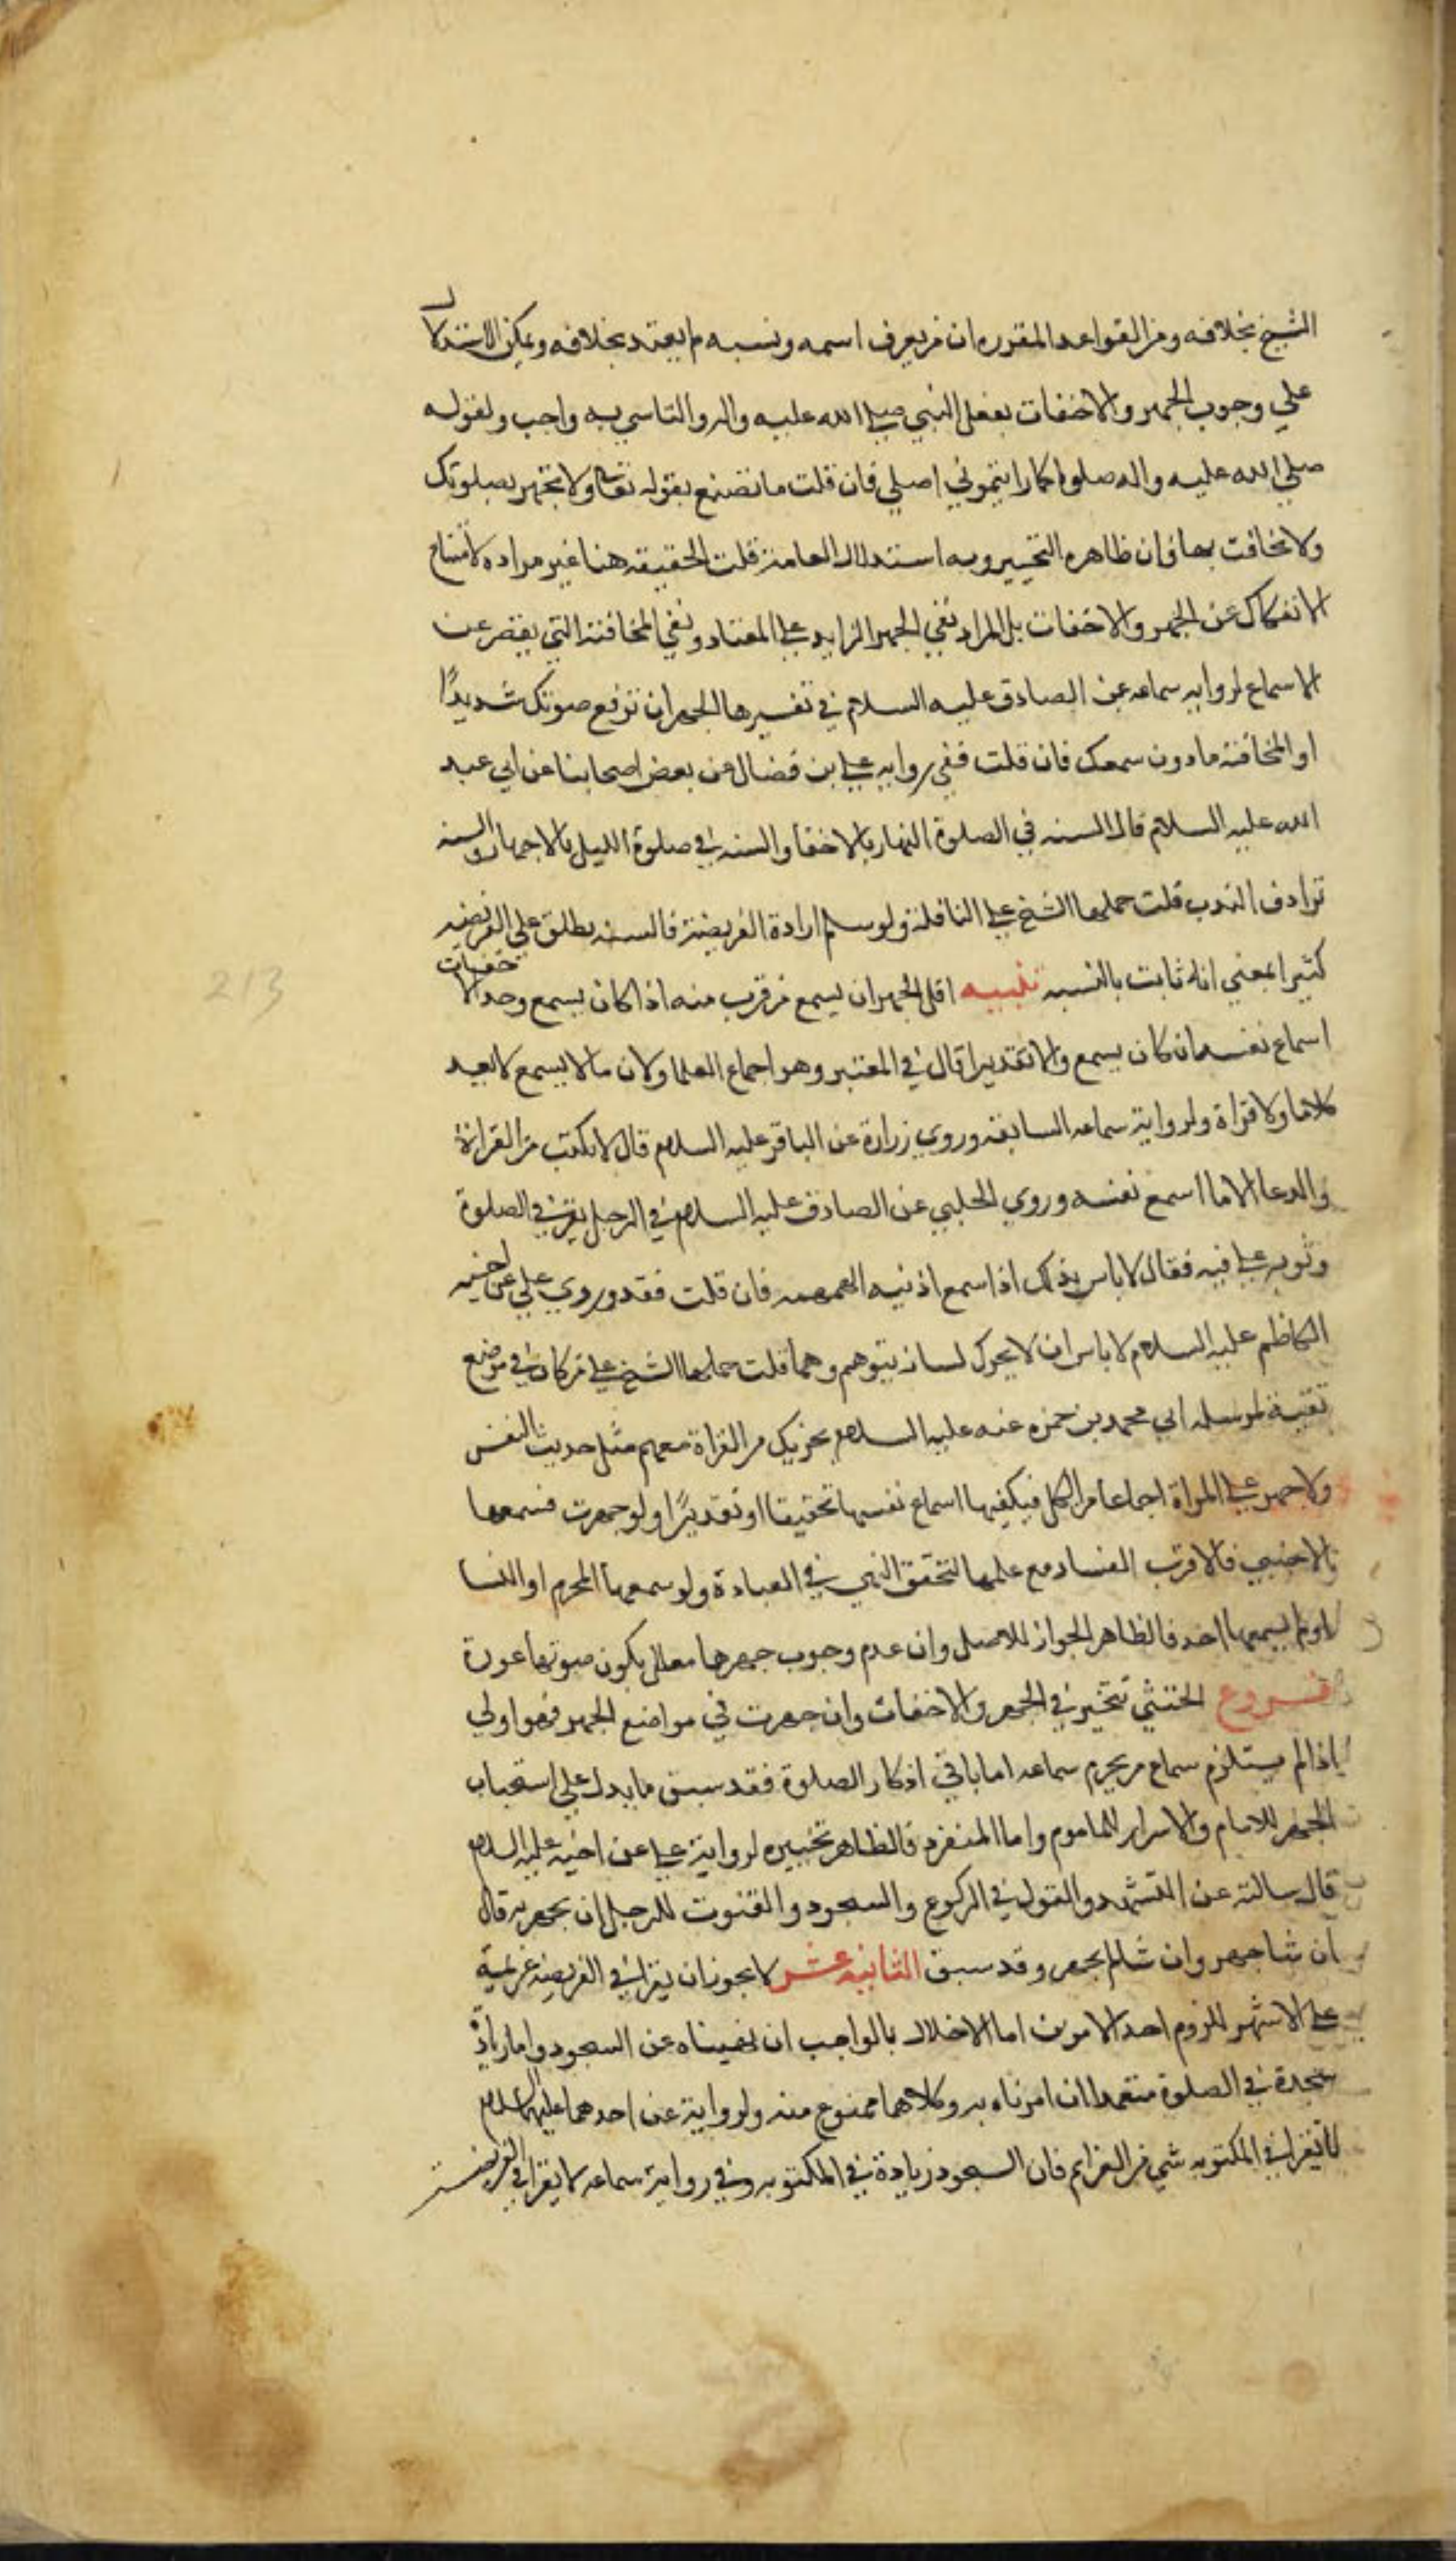 الشيخ بخلافه ومن القواعد المقرره ان من يعرف اسمه ونسبه لم يعتد بخلافه ويمكن الاستدلال
علي وجوب الجهر والاخفات بفعل النبي صلي الله عليه واله والتاسي به واجب ولقوله
صلي الله عليه واله صلوا كما رايتموني اصلي فان قلت ما تصنع بقوله تعالي ولا تجهر بصلوتك
ولا تخافت بها فان ظاهره التخيير وبه استدلال العامة قلت الحقيقه هنا غير مراده لامتناع
الانفكاك عن الجهر والاخفات بل المراد نفي الجهر الزايد علي المعتاد ونفي المخافتة التي يقصر عن
الاسماع لروايه سماعه عن الصادق عليه السلام في تفسيرها الجهر ان ترفع صوتك شديدًا
او المخافتة ما دون سمعك فان قلت ففي روايه علي بن فضال عن بعض اصحابنا عن ابي عبد
الله عليه السلام قال السنه في الصلوة النهار بالاخفا والسنه في صلوة الليل بالاجهار والسنه
ترادف الندب قلت حملها الشيخ علي النافلة ولو سلم ارادة الفريضة فالسنه يطلق علي الفريضه
كثيرا بمعني انه ثابت بالنسبه تنبيه اقل الجهر ان يسمع من قرب منه اذا كان يسمع وحد الاخفات
اسماع نفسه ان كان يسمع والا تقديرا قال في المعتبر وهو اجماع العلما ولان ما لا يسمع لا يعد
كلاما ولا قراة ولرواية سماعه السابقه وروي زرارة عن الباقر عليه السلام قال لا يكتب من القرانة
والدعا الا ما اسمع نفسه وروي الحلبي عن الصادق عليه السلام في الرجل يقرا في الصلوة
وثوبه علي فيه فقال لا باس بذلك اذا اسمع اذنيه الهمهمه فان قلت فقد روي علي عن اخيه
الكاظم عليه السلام لا باس ان لا يحرك لسانه يتوهم وهما قلت حملها الشيخ علي من كان في موضع
تقية لمرسله ابي محمد بن حمزه عنه عليه السلام يجزيك من القراة معهم مثل حديث النفس
ولا جهر علي المراة اجماعا من الكل فيكفيها اسماع نفسها تحقيقا او تقديرًا ولو جهرت فسمعها
الاجنبي فالاقرب الفساد مع علمها لتحقق النهي في العبادة ولو سمعها المحرم او النسا
او لم يسمعها احد فالظاهر الجواز للاصل وان عدم وجوب جهرها معلل بكون صوتها عورة
فروع الخنثي تتخير في الجهر والاخفات وان جهرت في مواضع الجهر فهو اولي
اذا لم يستلزم سماع من يحرم سماعه اما باقي اذكار الصلوة فقد سبق ما يدل علي استحباب
الجهر للامام والاسرار للماموم واما المنفرد فالظاهر تخييره لرواية علي عن اخيه عليه السلام
قال سالته عن التشهد والقول في الركوع والسجود والقنوت للرجل ان يجهر به قال
ان شا جهر وان شا لم يجهر وقد سبق الثانيه عشر لا يجوز ان يقرا في الفريضه عزيمة
علي الاشهر للزوم احد الامرين اما الاخلال بالواجب ان نهيناه عن السجود واما زيادة
سجدة في الصلوة متعمدا ان امرناه به وكلاهما ممنوع منه ولرواية عن احدهما عليهما السلام
لا تقرا في المكتوبه شي من العزايم فان السجود زيادة في المكتوبه وفي رواية سماعه لا يقرا في الفريضة
213